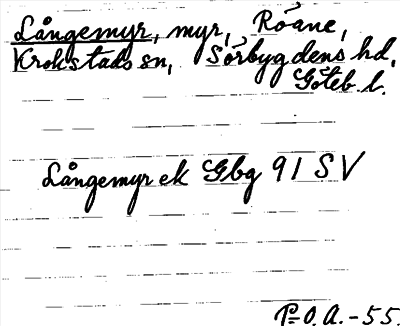 Långemyr, myr, Röane,
Krokstads sn, Sörbygdens hd,
Göteb l.
Långemyr ek Gbg 91 SV
P-O.A. -55.